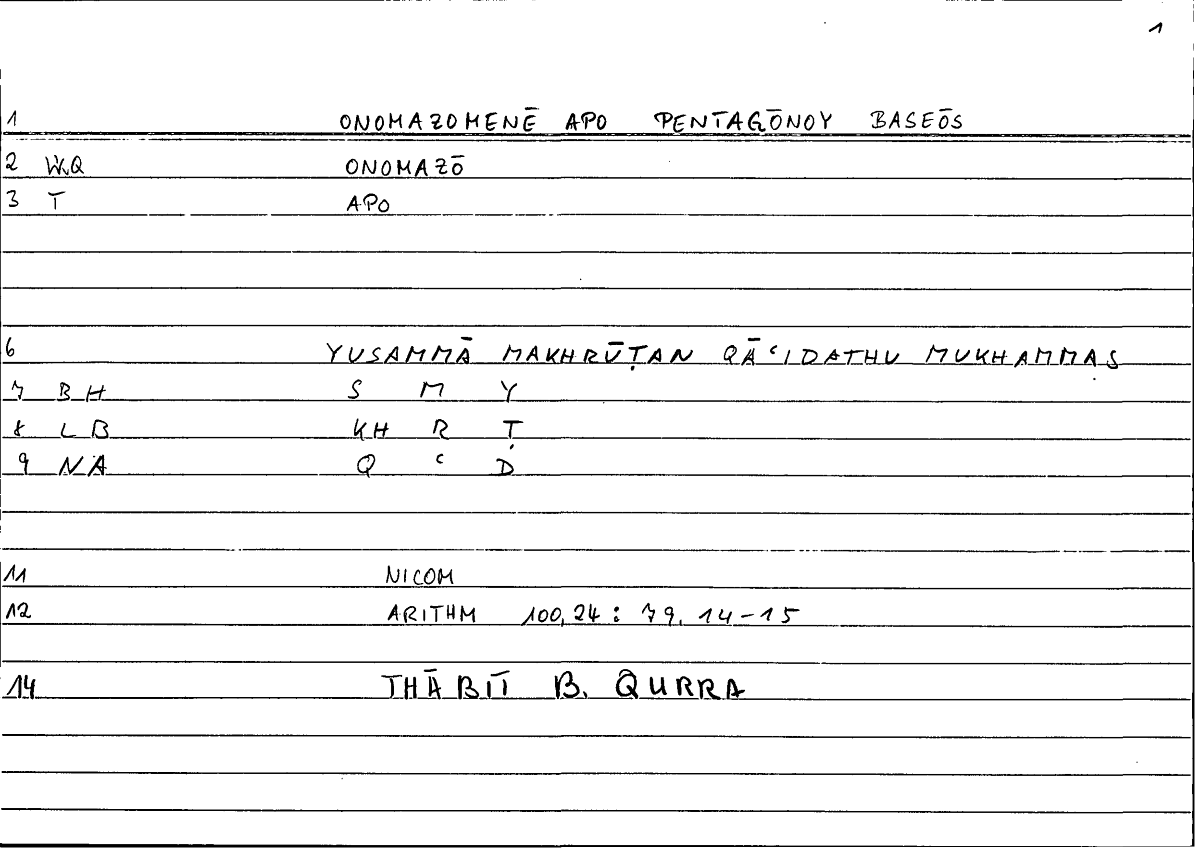 1
1 ONOMAZOMENĒ APO PENTAGŌNOY BASEŌS
2 WQ ONOMAZŌ
3 T APO
6 YUSAMMĀ MAKHRŪṬAN QĀʿIDATHU MUKHAMMAS
7 BH S M Y
8 LB KH R Ṭ
9 NA Q ʿ D
11 NICOM
12 ARITHM 100,24 : 79. 14-15
14 THĀBIT B. QURRA